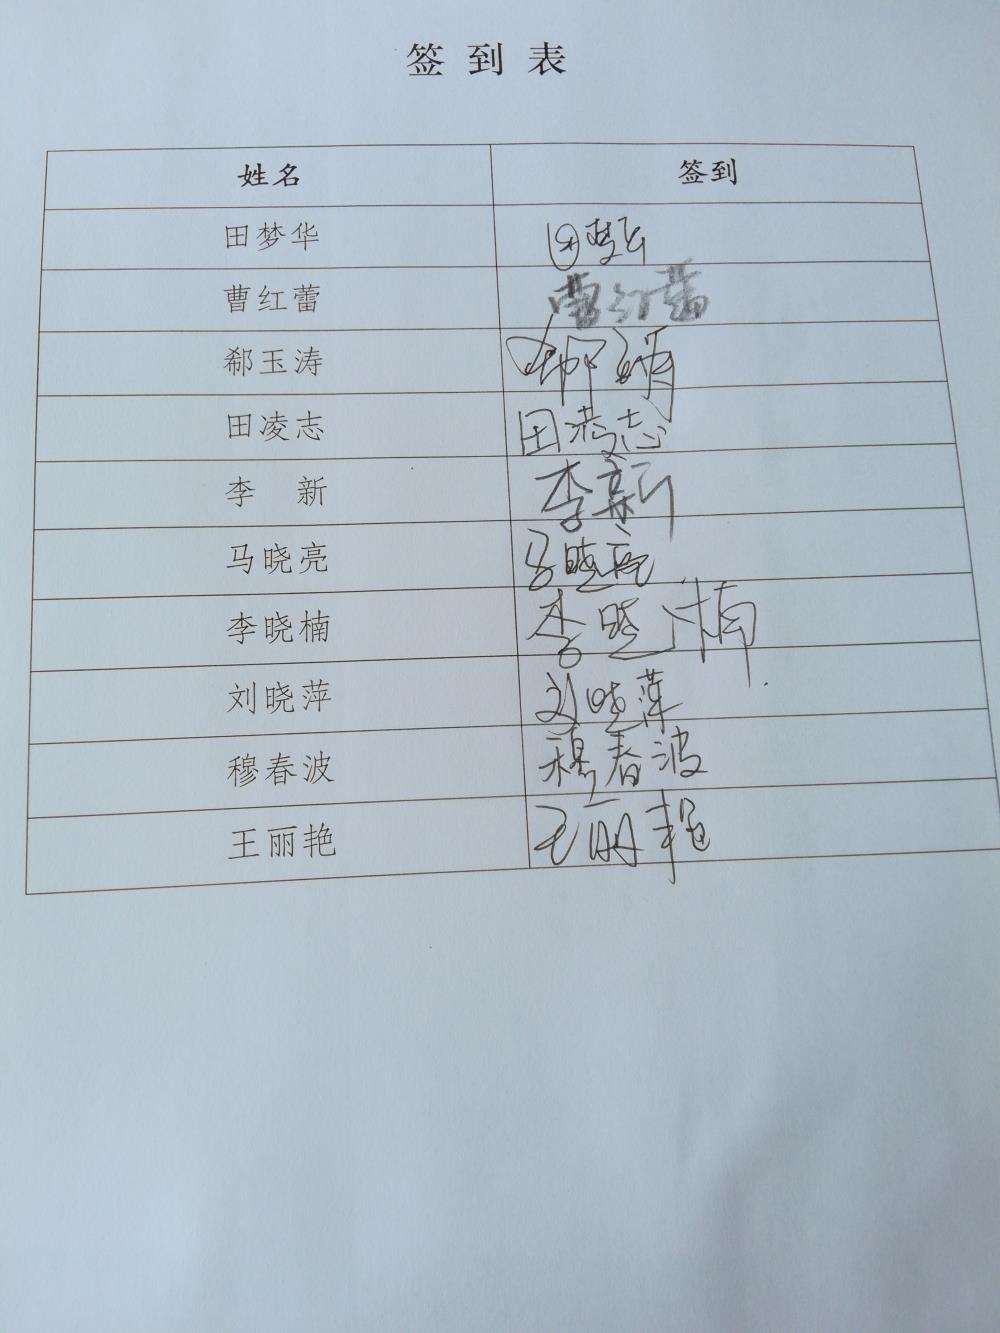 签到表
姓名 签到
田梦华 田梦华
曹红蕾 曹红蕾
郗玉涛 郗玉涛
田凌志 田凌志
李 新 李新
马晓亮 马晓亮
李晓楠 李晓楠
刘晓萍 刘晓萍
穆春波 穆春波
王丽艳 王丽艳